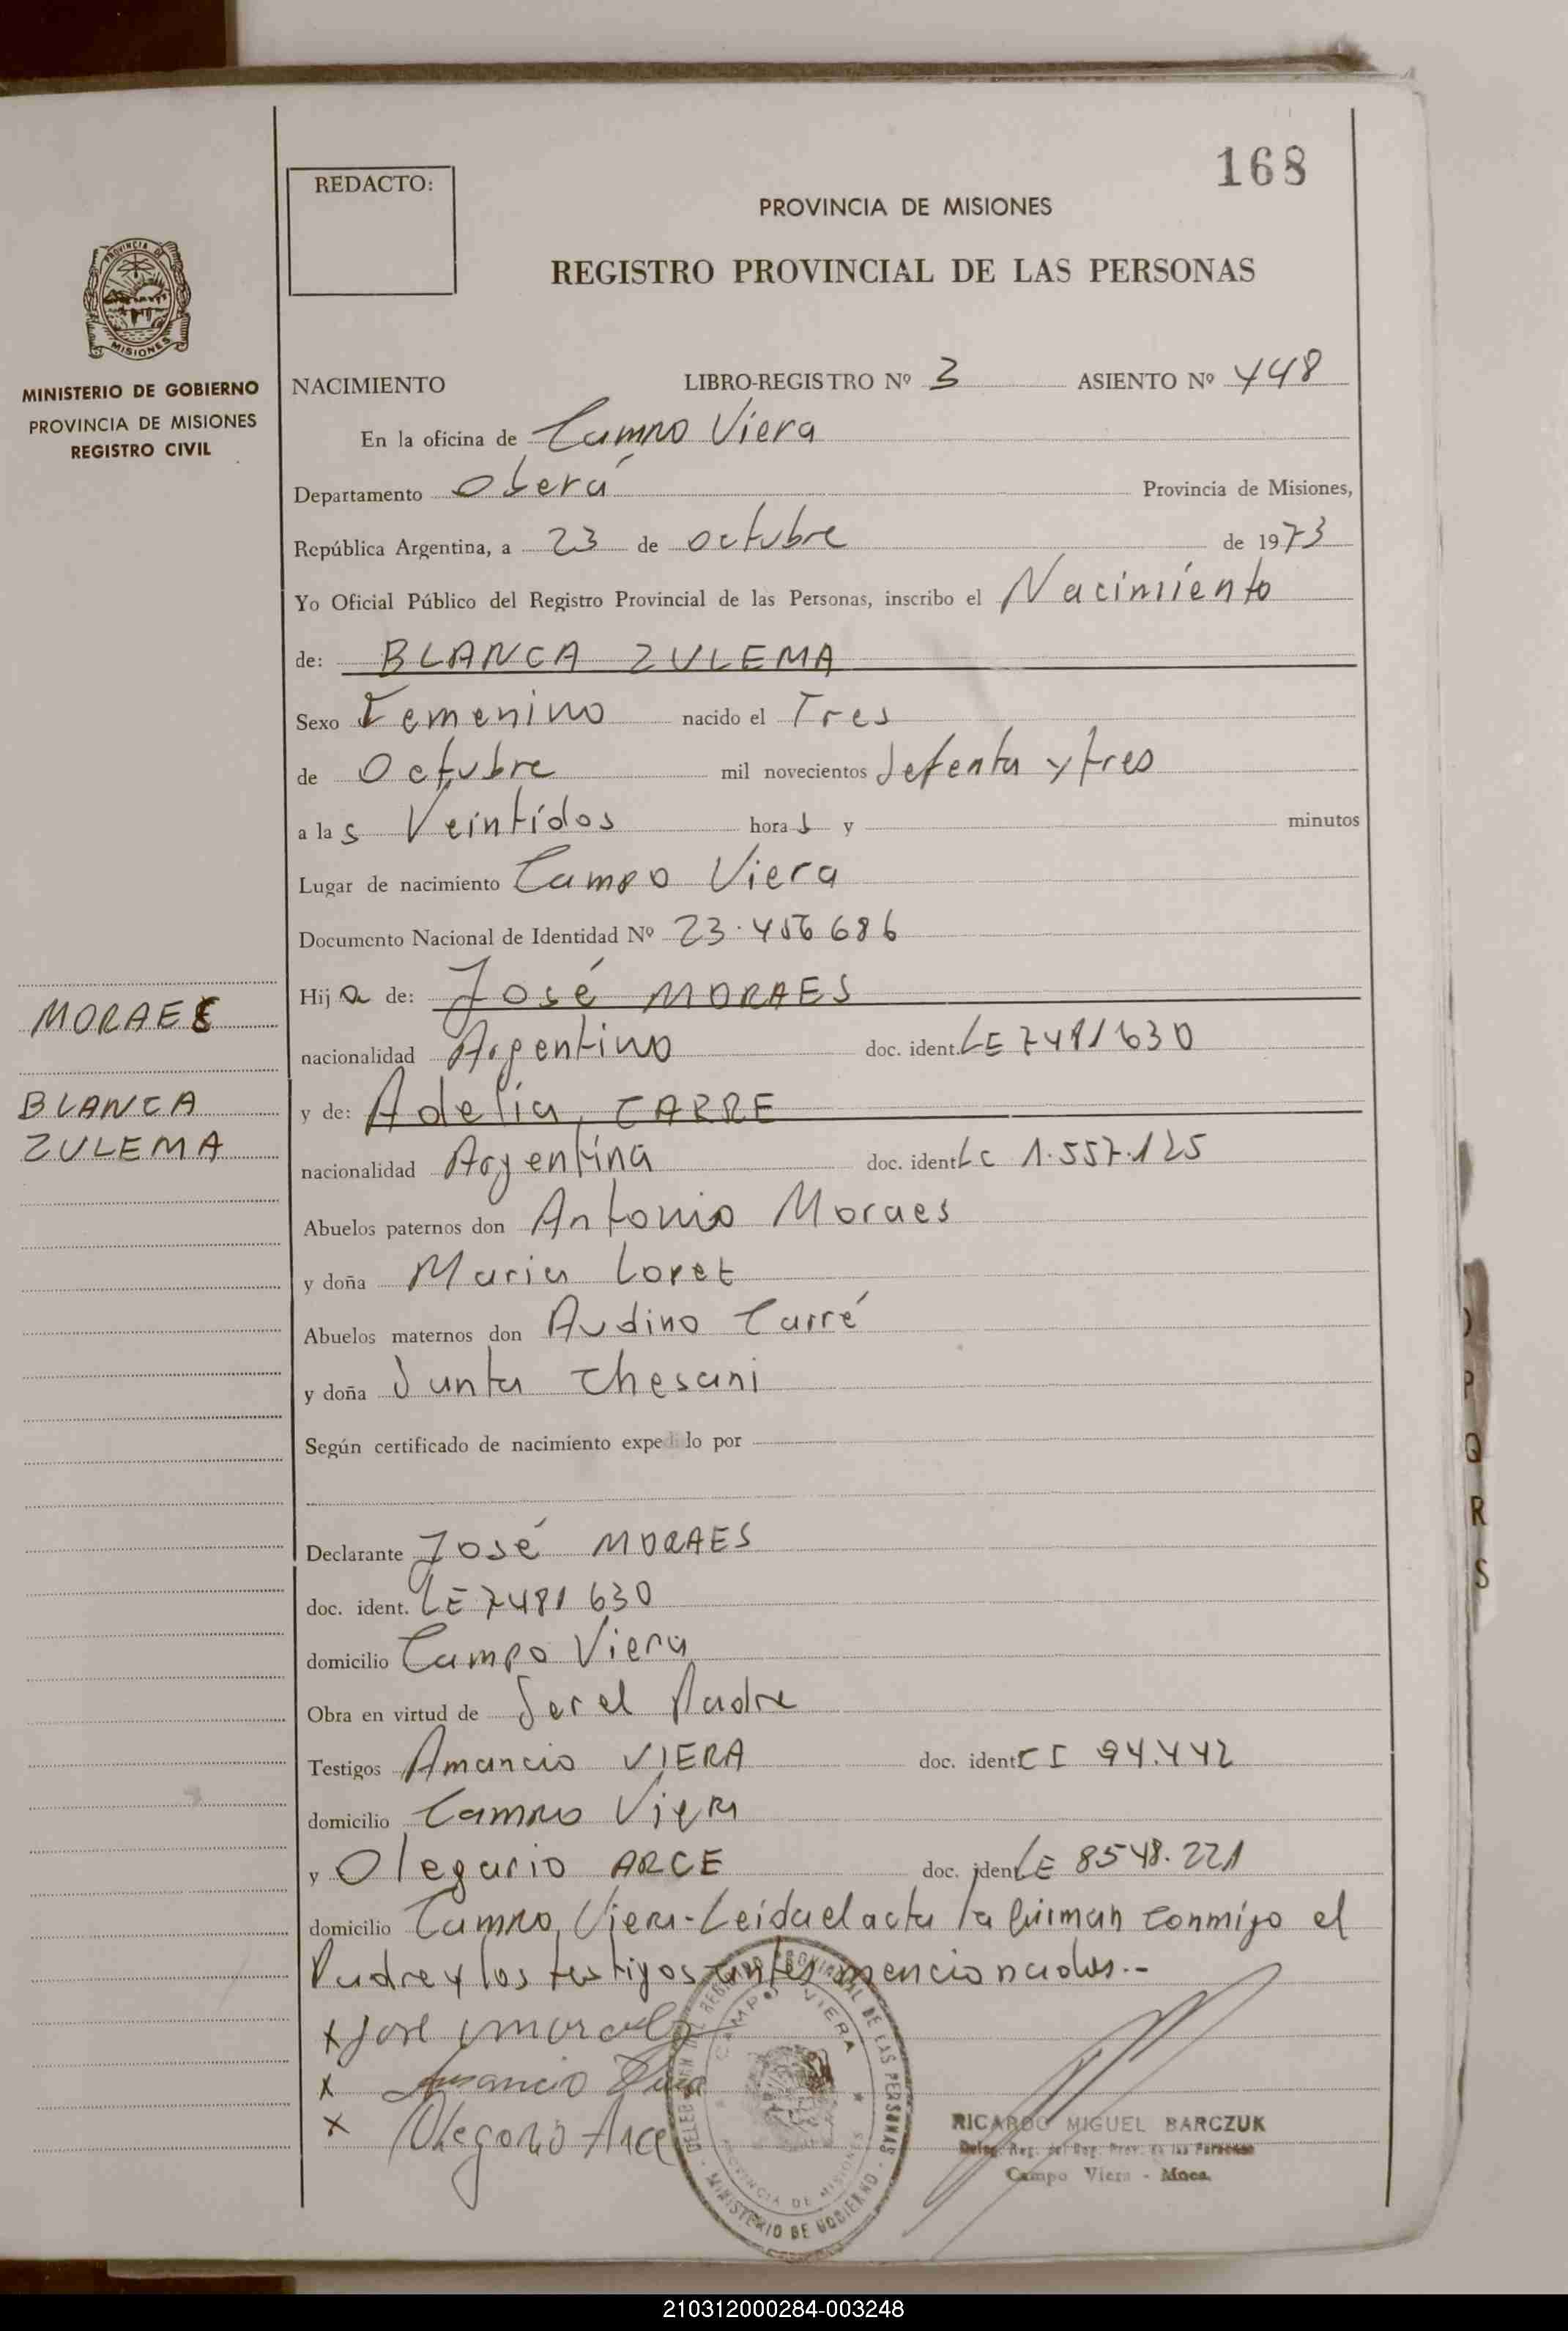 168
REDACTO:
PROVINCIA DE MISIONES
REGISTRO PROVINCIAL DE LAS PERSONAS
MISIONES
MINISTERIO DE GOBIERNO
PROVINCIA DE MISIONES
REGISTRO CIVIL
NACIMIENTO LIBRO-REGISTRO Nº 3 ASIENTO Nº 448
En la oficina de Campo Viera
Departamento Oberá Provincia de Misiones,
República Argentina, a 23 de octubre de 1973
Yo Oficial Público del Registro Provincial de las Personas, inscribo el Nacimiento
de: BLANCA ZULEMA
Sexo Femenino nacido el Tres
de Octubre mil novecientos setenta y tres
a las Veintidos horas y minutos
Lugar de nacimiento Campo Viera
Documento Nacional de Identidad Nº 23.456686
Hija de: José MORAES
MORAES
nacionalidad Argentino doc. ident. LE 7481630
BLANCA
y de: Adelia, CARRE
ZULEMA
nacionalidad Argentina doc. ident LC 1.557.125
Abuelos paternos don Antonio Moraes
y doña Maria Lopet
Abuelos maternos don Audino Carré
y doña Santa Chesani
Según certificado de nacimiento expedido por
Declarante José MORAES
doc. ident. LE 7481630
domicilio Campo Viera
Obra en virtud de Ser el Padre
Testigos Amancio VIERA doc. ident CI 94.442
domicilio Campo Viera
y Olegario ARCE doc. ident LE 8548.221
domicilio Campo Viera-Leida el acta la firman conmigo el
Padre y los testigos antes mencionados.-
x José
x Amancio Viera
x Olegario Arce
REGISTRO PROVINCIAL DE LAS PERSONAS
CAMPO VIERA
PROVINCIA DE MISIONES
MINISTERIO DE GOBIERNO
RICARDO MIGUEL BARCZUK
Deleg. Reg. del Reg. Prov. de las Personas
Campo Viera - Mnes.
P
Q
R
S
210312000284-003248